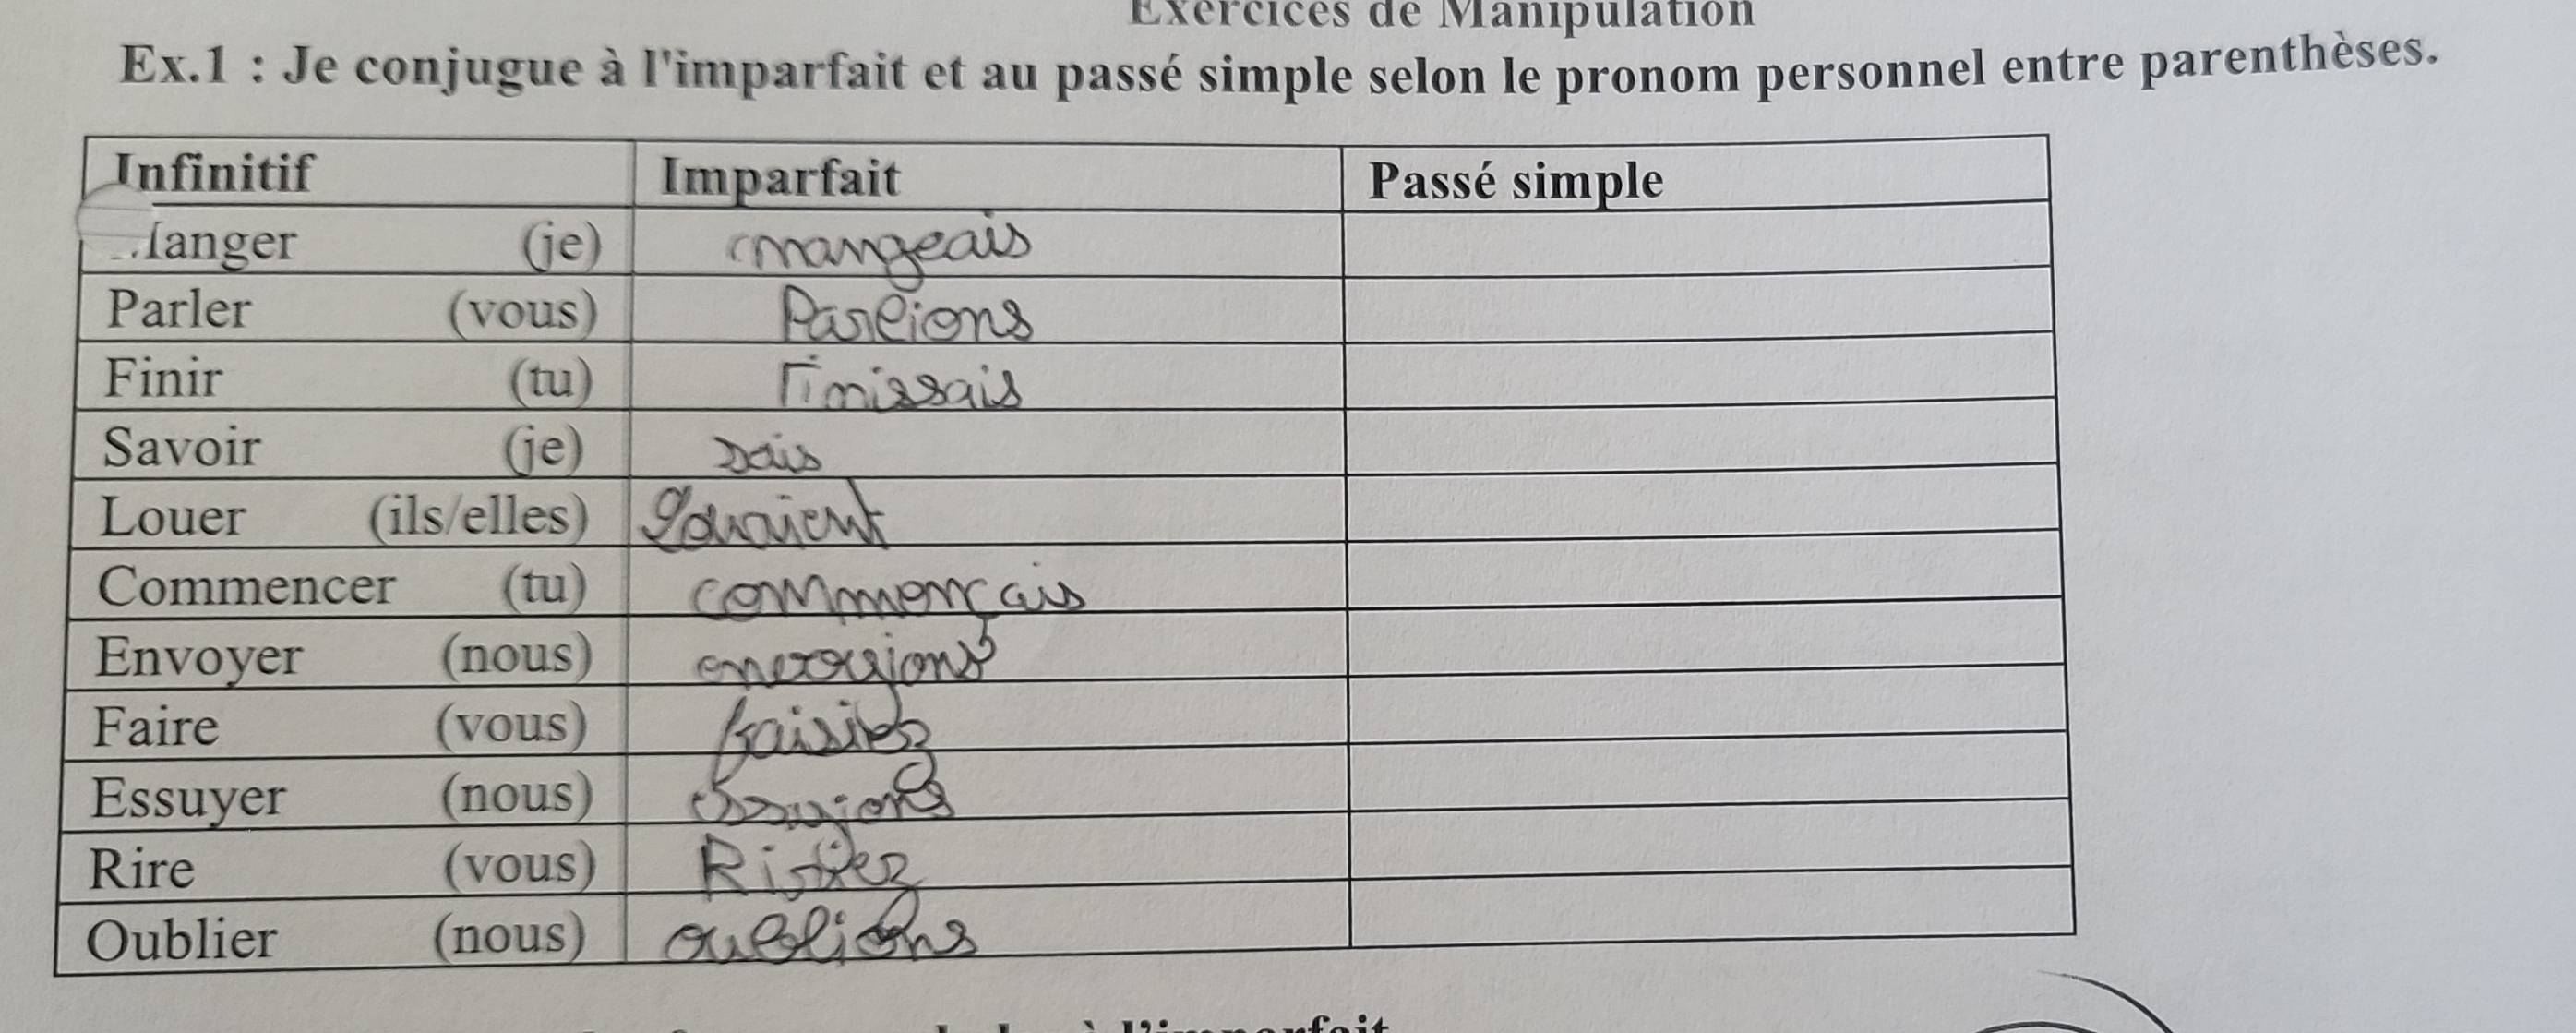 Exercices de Manipulation
Ex.1 : Je conjugue à l'imparfait et au passé simple selon le pronom personnel entre parenthèses.
Infinitif Imparfait Passé simple
Manger (je) mangeais
Parler (vous) Parlions
Finir (tu) Finissais
Savoir (je) Sais
Louer (ils/elles) louaient
Commencer (tu) commençais
Envoyer (nous)
Faire (vous) faisiez
Essuyer (nous)
Rire (vous)
Oublier (nous) oublions
à l'imparfait